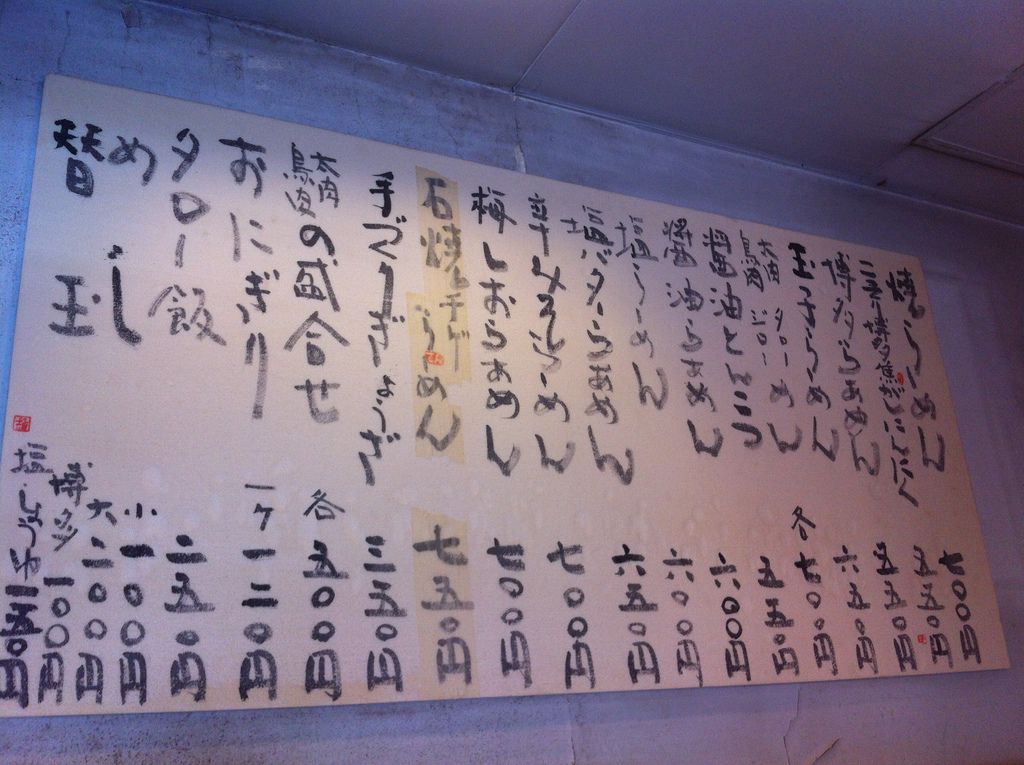 焼らーめん 七〇〇円
五五〇円
博多らあめん 五五〇円
玉子らーめん 六五〇円
タローめん 各七〇〇円
醤油とんこつ 五五〇円
醤油らあめん 六〇〇円
塩らーめん 六〇〇円
塩バターらあめん 六五〇円
辛みそらーめん 七〇〇円
梅しおらあめん 七〇〇円
石焼チゲらーめん 七五〇円
手づくりぎょうざ 三五〇円
の盛合せ 各五〇〇円
おにぎり 一ケ一二〇円
タロー飯 二五〇円
めし 小一〇〇円
大二〇〇円
替玉 博多一〇〇円
塩・しょうゆ 一五〇円